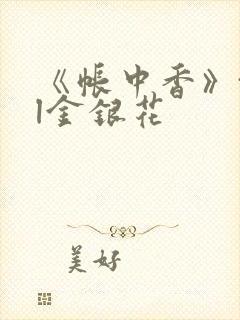 《帐中香》
|金银花
美好